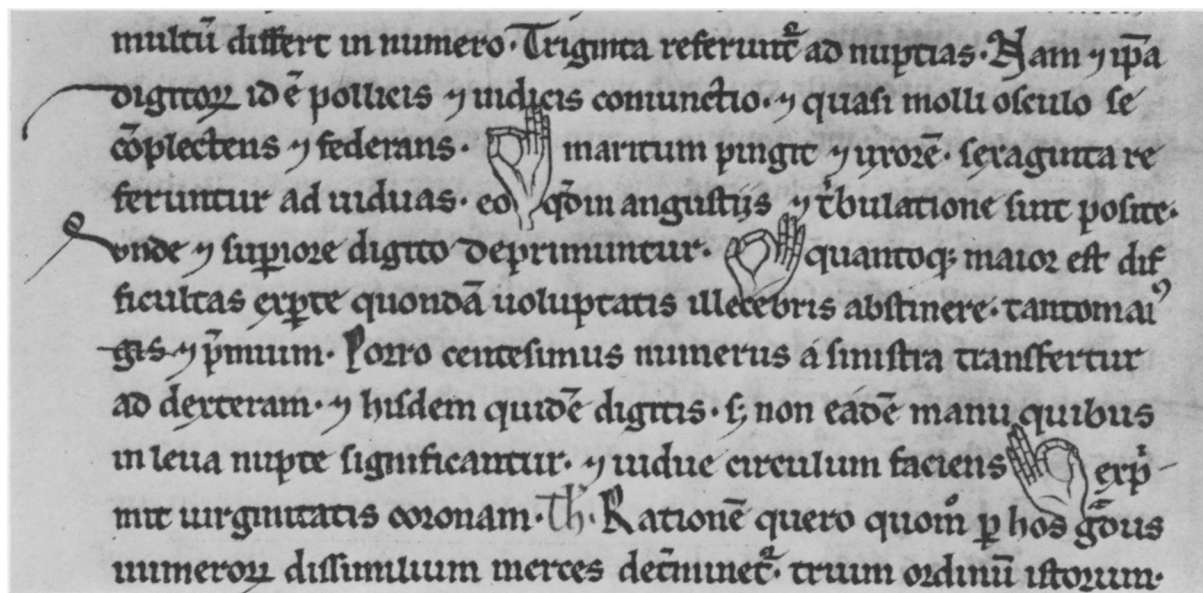 multū differt in numero. Triginta referunt᷑ ad nuptias. Nam ⁊ ip̄a
digitoꝝ id ē pollicis ⁊ indicis coniunctio. ⁊ quasi molli osculo se
cōplectens ⁊ federans. maritum pingit ⁊ uxorē. sexaginta re
feruntur ad uiduas. eo qd̄ in angustijs ⁊ tͥbulatione sint posite.
vnde ⁊ suꝑiore digito deprimuntur. quantoqꝫ maior est dif
ficultas exꝑte quondā uoluptatis illecebris abstinere. tanto mai⁹
gis ⁊ p̄mium. Porro centesimus numerus a sinistra transfertur
ad dexteram. ⁊ hisdem quidē digitis. sꝫ non eadē manu quibus
in leua nupte significantur. ⁊ uidue circulum faciens expͥ
mit uirginitatis coronam. Th. Rationē quero quom̊ ꝑ hos gᷓdus
numeroꝝ dissimilium merces det̄minet᷑. trium ordinū istorum.